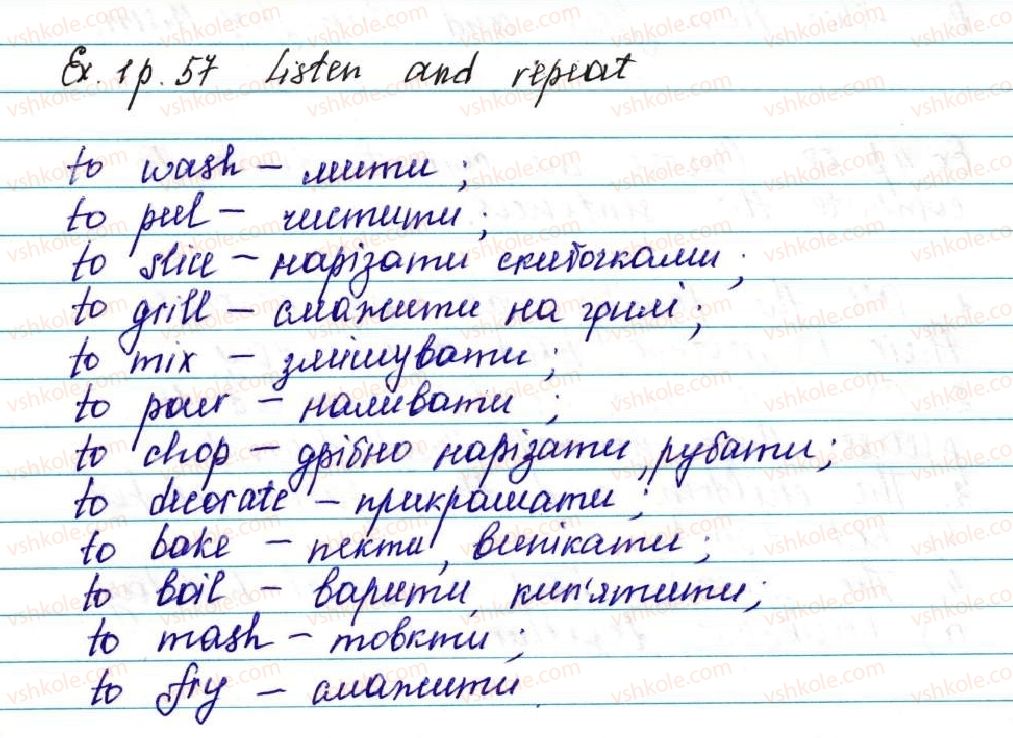 Ex. 1 p. 57 Listen and repeat
to wash – мити;
to peel – чистити;
to slice – нарізати скибочками;
to grill – смажити на грилі;
to mix – змішувати;
to pour – наливати;
to chop – дрібно нарізати, рубати;
to decorate – прикрашати;
to bake – пекти, випікати;
to boil – варити, кип'ятити;
to mash – товкти;
to fry – смажити.